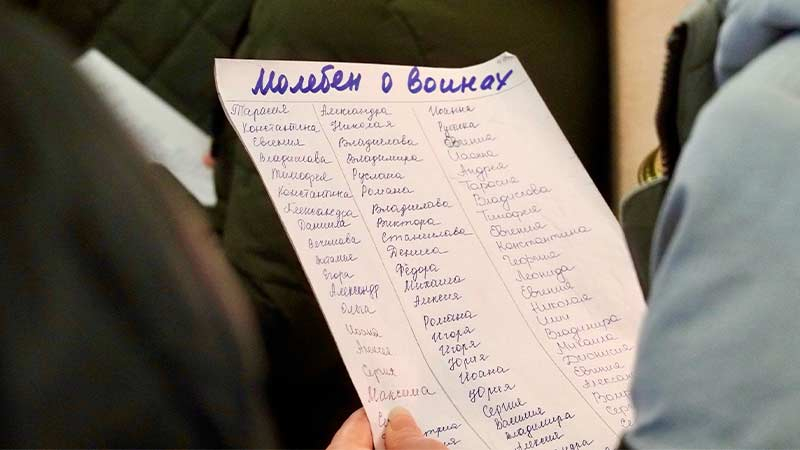 Молебен о воинах
Тарасия
Константина
Евгения
Владислава
Тимофея
Константина
Александра
Даниила
Вячеслава
Егора
Александр
Ольга
Иоанна
Алексея
Сергия
Максима
Александра
Николая
Владислава
Владимира
Руслана
Романа
Владислава
Виктора
Станислава
Дениса
Фёдора
Михаила
Алексия
Романа
Игоря
Игоря
Юрия
Иоана
Юрия
Сергия
Василия
Владимира
Алексия
Иоанна
Евгения
Иоанна
Андрея
Тарасия
Владислава
Тимофея
Евгения
Константина
Георгия
Леонида
Евгения
Николая
Владимира
Михаила
Дионисия
Евгения